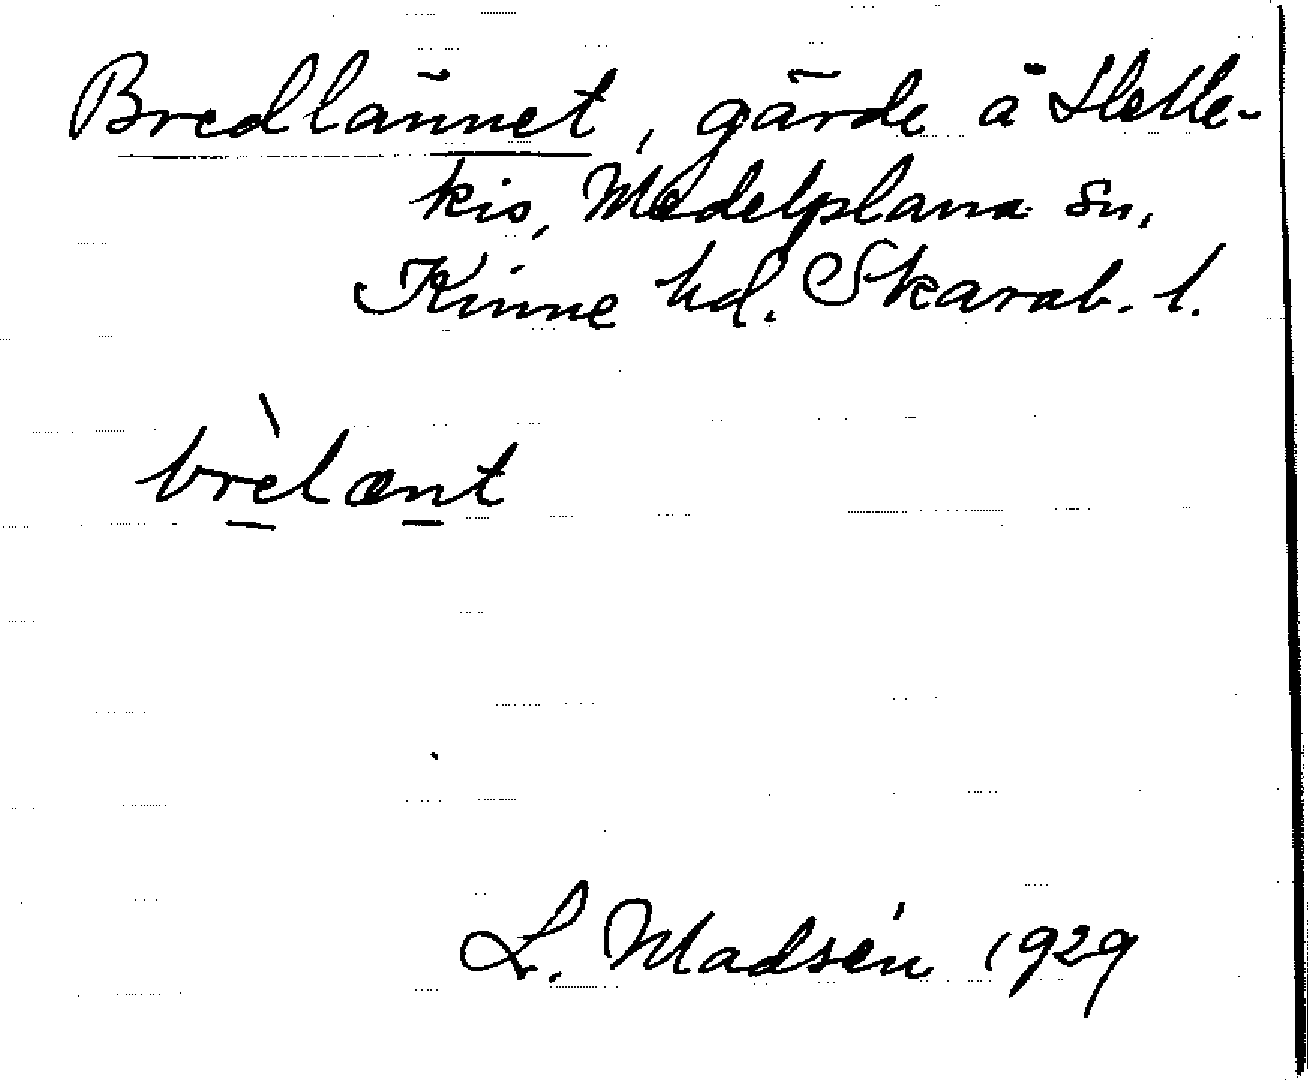 Bredlännet, gärde å Helle-
kis, Medelplana sn,
Kinne hd. Skarab. l.
brèlænt
L. Madsén 1929